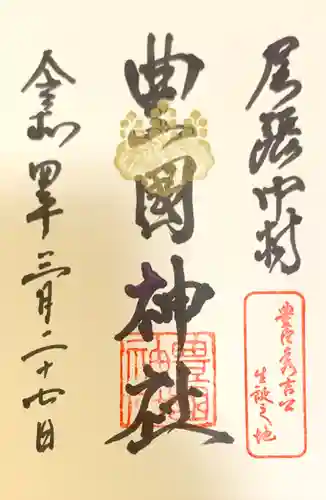 尾張中村
豊臣秀吉公
生誕之地
豊國神社
令和四年三月二十七日